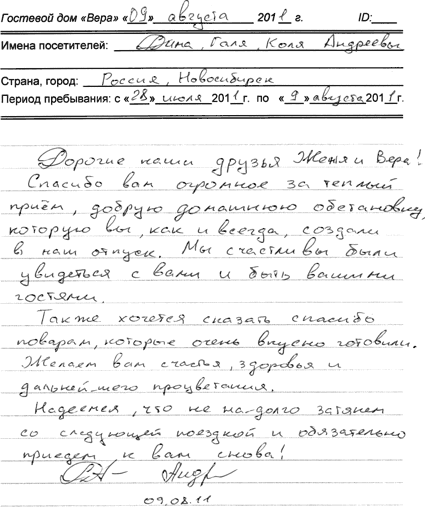 Гостевой дом «Вера» «09» августа 2011 г. ID:
Имена посетителей: Дина, Галя, Коля Андреевы
Страна, город: Россия, Новосибирск
Период пребывания: с «28» июля 2011 г. по «9» августа 2011 г.
Дорогие наши друзья Женя и Вера!
Спасибо вам огромное за теплый
приём, добрую домашнюю обстановку,
которую вы, как и всегда, создали
в наш отпуск. Мы счастливы были
увидеться с вами и быть вашими
гостями.
Также хочется сказать спасибо
поварам, которые очень вкусно готовили.
Желаем вам счастья, здоровья и
дальнейшего процветания.
Надеемся, что не на-долго затянем
со следующей поездкой и обязательно
приедем к вам снова!
09.08.11